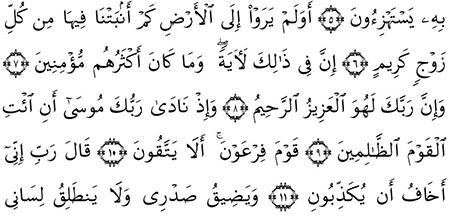 بِهِۦ يَسْتَهْزِءُونَ ۝٥ أَوَلَمْ يَرَوْا۟ إِلَى ٱلْأَرْضِ كَمْ أَنۢبَتْنَا فِيهَا مِن كُلِّ
زَوْجٍ كَرِيمٍ ۝٦ إِنَّ فِى ذَٰلِكَ لَأٓيَةً ۖ وَمَا كَانَ أَكْثَرُهُم مُّؤْمِنِينَ ۝٧
وَإِنَّ رَبَّكَ لَهُوَ ٱلْعَزِيزُ ٱلرَّحِيمُ ۝٨ وَإِذْ نَادَىٰ رَبُّكَ مُوسَىٰٓ أَنِ ٱئْتِ
ٱلْقَوْمَ ٱلظَّٰلِمِينَ ۝٩ قَوْمَ فِرْعَوْنَ ۚ أَلَا يَتَّقُونَ ۝١٠ قَالَ رَبِّ إِنِّىٓ
أَخَافُ أَن يُكَذِّبُونِ ۝١١ وَيَضِيقُ صَدْرِى وَلَا يَنطَلِقُ لِسَانِى